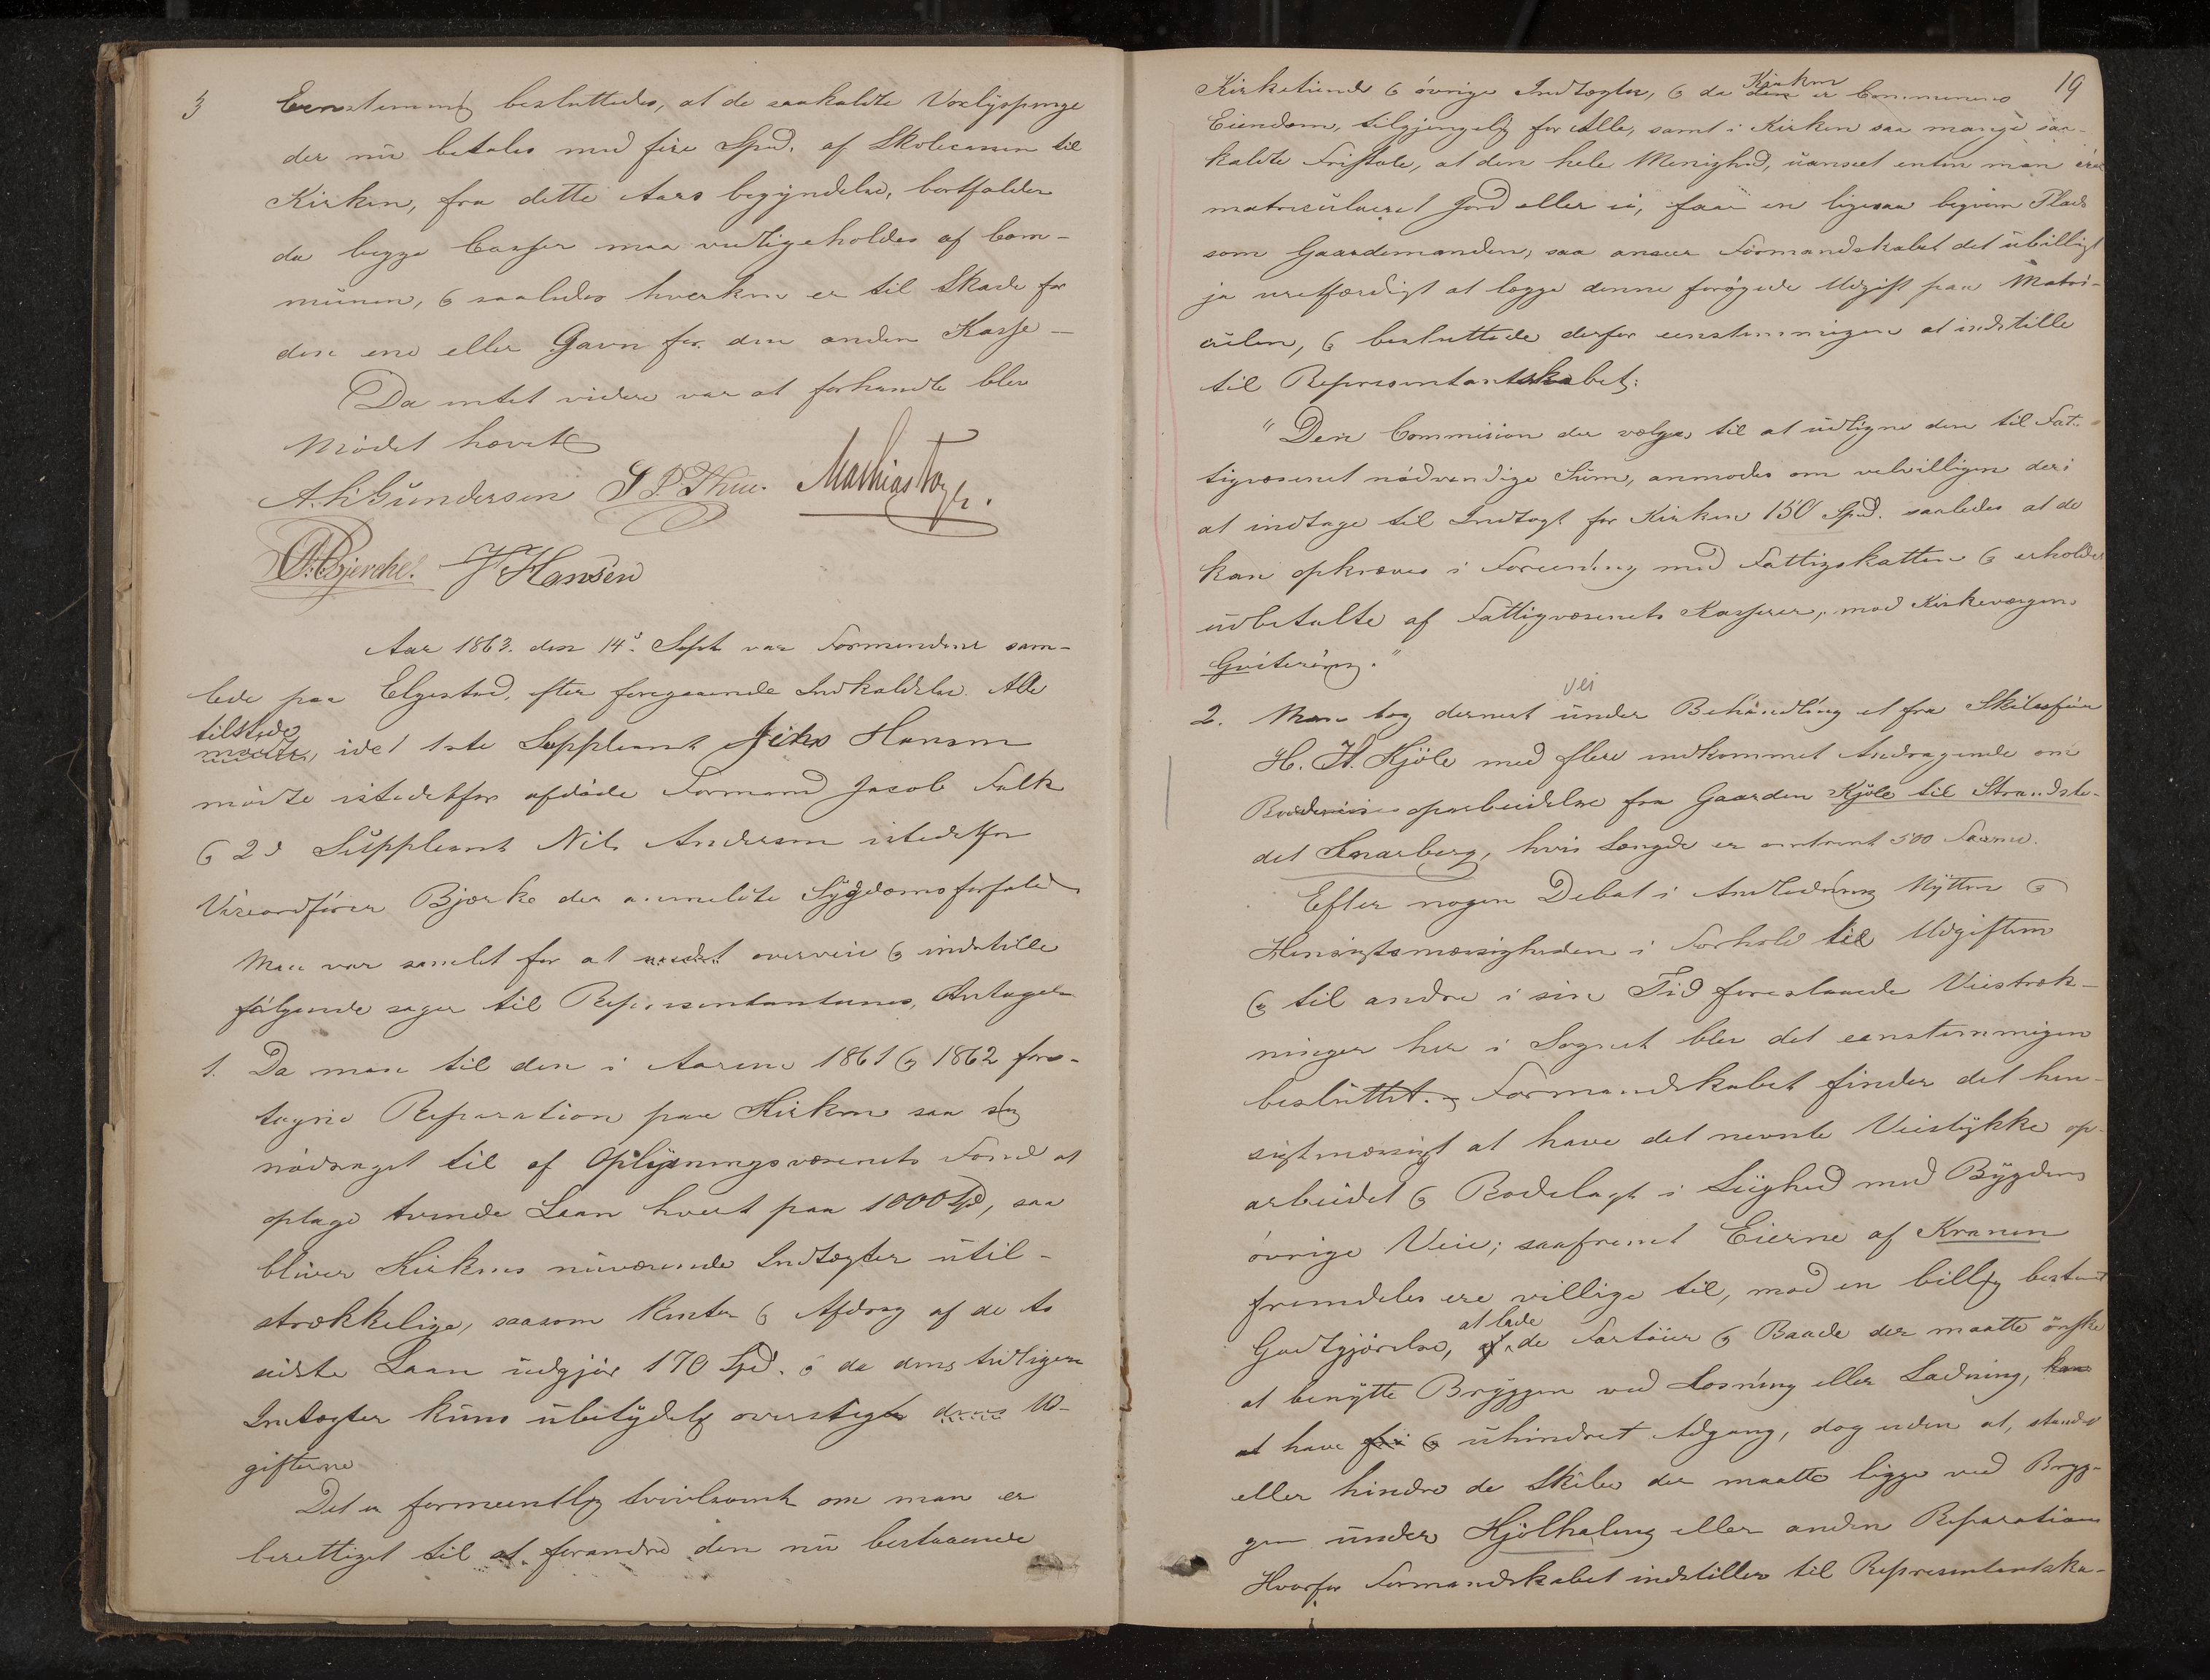 3 Eenstemmig besluttedes, at de saakaldte Voxlyspenge
der nu betales med fire Spd. af Skolecassen til
Kirken, fra dette Aars begyndelse, bortfalder
da begge Casser maa vedligeholdes af Com-
münen, & saaledes hverken er til Skade for
den ene eller Gavn for den anden Kasse –
Da intet videre var at forhandle blev
Mödet hævet
A. Gundersen S P. Thue. Mathias
Bjerche. Hansen
Aar 1863. den 14de Sept var Formændene sam-
lede paa Elgestad, efter foregaaende Indkaldelse. Alle
tilstede
mødte, idet 1ste Suppleant Jens Hansen
mödte istedetfor afdöde Formand Jacob Falk
& 2d Süppleant Nils Andersen istedetfor
Viceordförer Bjerke der anmeldte Sygdomsforfald
Man var samlet for at overveie & indstille
følgende sager til Representanternes, Antagelse
1. Da man til den i Aarene 1861 & 1862 fore-
tagne Reparation paa Kirken saa sig
nödsaget til af Oplysningsvæsenets Fond at
optage tvende Laan hvert paa 1000 Spd, saa
bliver Kirkens nüværende Indtægter util-
strækkelige, saasom Renter & Afdrag af de to
sidste Laan üdgjör 170 Spd. & da dens tidligere
Indtægter küns übetydelig oversteg dens Ud-
gifterne
Det er formeentlig tvivlsomt om man er
berettiget til at forandre den nü bestaaende
19
Kirken
Kirketiende & övrige Indtægter, & da den er Communens
Eiendom, tilgjengelig for Alle, samt i Kirken saa mange saa-
kaldte Fristole, at den hele Menighed, üanseet enten man eier
matriculeret Jord eller ei, faar en ligesaa beqvem Plads
som Gaardemanden, saa anseer Formandskabet det übilligt
ja uretfærdigt at lægge denne forögede Udgift paa Matri-
cülen, & besluttede derfor eenstemmigen at indstille
til Representantskabet:
"Den Commision der vælges til at üdligne den til Fat-
tigvæsenet nödvendige Süm, anmodes om velvilligen deri
at indtage til Indtægt for Kirken 150 Spd. saaledes at de
kan opkræves i Forening med Fattigskatten & erholdes
üdbetalte af Fattigvæsenets Kasserer, mod Kirkeværgens
Qvitering."
vei
2. Man tog dernest ünder Behandling et fra Skibsförer
H. H. Kjöle med flere indkommet Andragende om
oparbeidelse fra Gaarden Kjöle til Strandste-
det Snarberg, hvis Længde er omtrent 500 Favne.
Efter nogen Debat i Anledning Nytten &
Hensigtsmæssigheden i Forhold til Udgiften
& til andre i sin Tid foreslaaede Veistræk-
ninger her i Sognet blev det eenstemmigen
beslüttet. Formandskabet finder det hen-
sigtmæssigt at have det nevnte Veistykke op-
arbeidet & Rodelagt i Liighed med Bygdens
övrige Veie; saafremt Eierne af Kranen
fremdeles ere villige til, mod en billig bestemt
at lade
Godtgjörelse, af de Fartöier & Baade der maatte önske
at benytte Bryggen ved Losning eller Ladning,
at have fri & uhindret Adgang, dog uden at, standse
eller hindre de Skibe der maatte ligge ved Bryg-
gen ünder Kjölhaling eller anden Reparation
Hvorfor Formandskabet indstiller til Representantska-